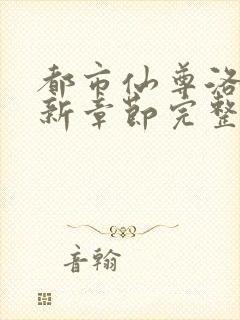 都市仙尊洛
新章节完整
音翰